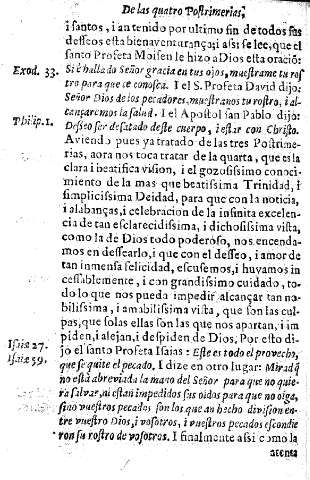 De las quatro Postrimerias,
i santos, i an tenido por ultimo fin de todos sus
desseos esta bienaventurança; i assi se lee, que el
santo Profeta Moisen le hizo a Dios esta oració:
Exod. 33. Si è hallado Señor gracia en tus ojos, muestrame tu ros
tro para que te conosca. I el S. Profeta David dijo:
Señor Dios de los pecadores, muestranos tu rostro, i al-
cançaremos la salud. I el Apostol san Pablo dijo:
Philip. 1. Deseo ser desatado deste cuerpo, i estar con Christo.
Aviendo pues ya tratado de las tres Postrime-
rias, aora nos toca tratar de la quarta, que es la
clara i beatifica vision, i el gozosissimo conoci-
miento de la mas que beatissima Trinidad, i
simplicissima Deidad, para que con la noticia,
i alabanças, i celebracion de la infinita excelen-
cia de tan esclarecidissima, i dichosissima vista,
como la de Dios todo poderoso, nos encenda-
mos en dessearlo, i que con el desseo, i amor de
tan inmensa felicidad, escusemos, i huyamos in
cessablemente, i con grandissimo cuidado, to-
do lo que nos pueda impedir alcançar tan no-
bilissima, i amabilissima vista, que son las cul-
pas, que solas ellas son las que nos apartan, i im
piden, i alejan, i despiden de Dios. Por esto di-
Isaiæ 27. jo el santo Profeta Isaias: Este es todo el provecho,
Isaiæ 59. que se quite el pecado. I dize en otro lugar: Mirad q̃
no está abreviada la mano del Señor para que no quie-
ra salvar, ni estan impedidos sus oidos para que no oiga,
sino vuestros pecados son los que an hecho division en-
tre vuestro Dios, i vosotros, i vuestros pecados escondie
ron su rostro de vosotros. I finalmente assi como la
atenta